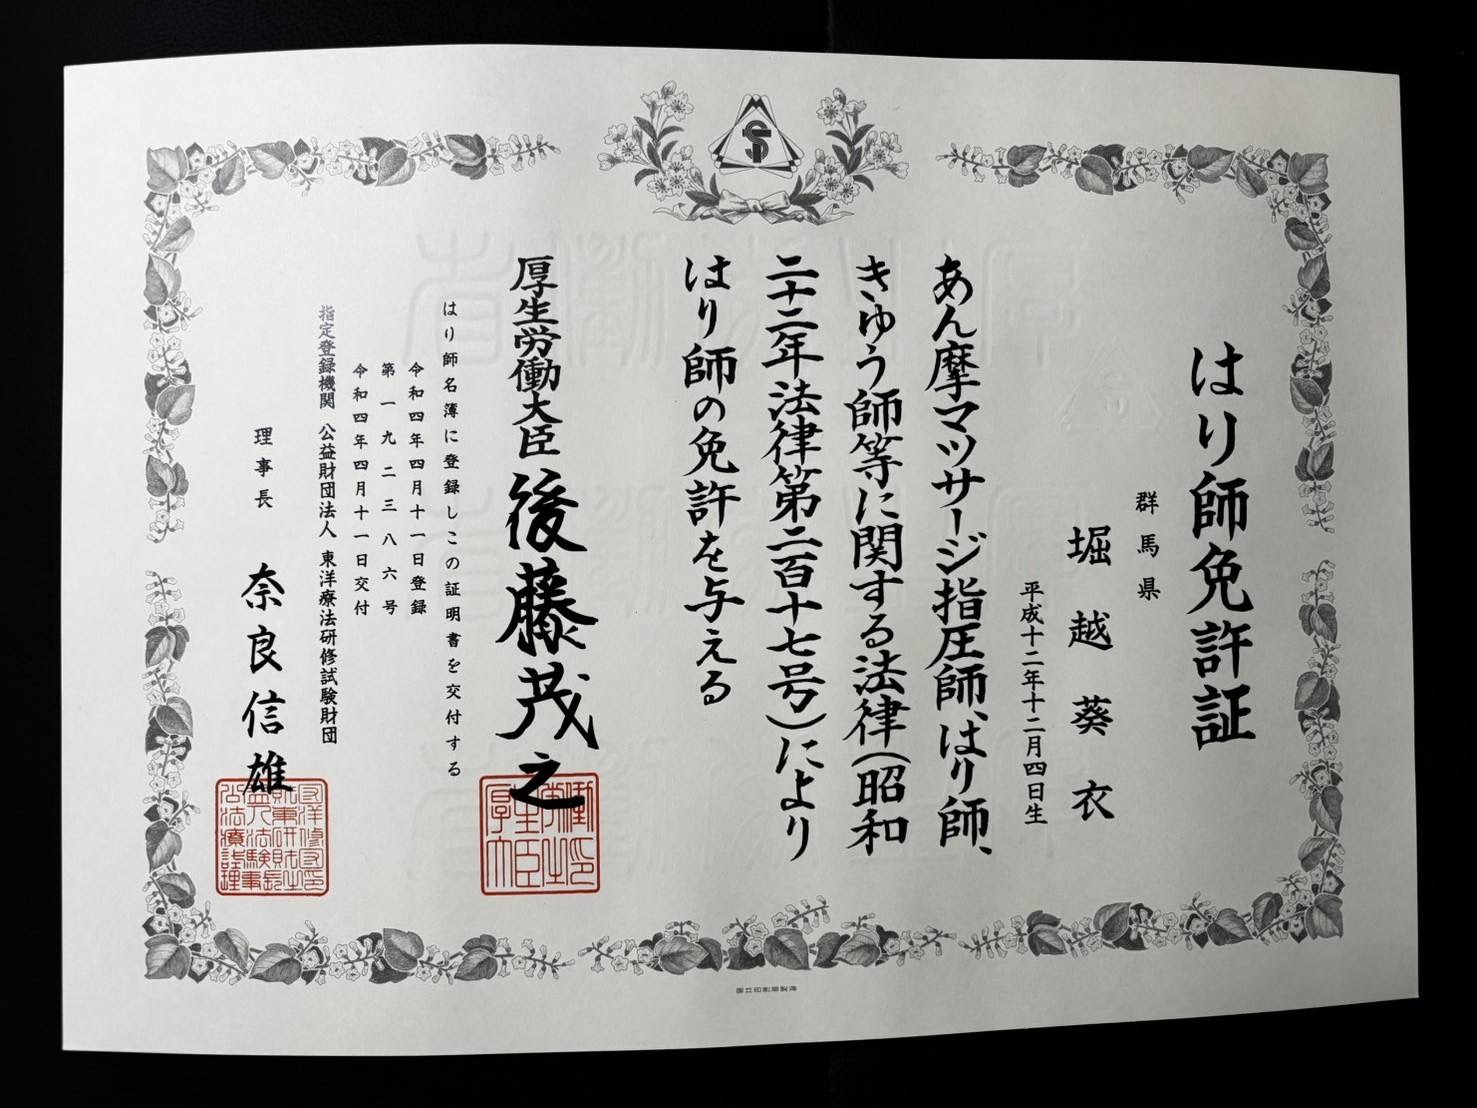 はり師免許証
群馬県
堀越葵衣
平成十二年十二月四日生
あん摩マツサージ指圧師、はり師、
きゆう師等に関する法律(昭和
二十二年法律第二百十七号)により
はり師の免許を与える
厚生労働大臣 後藤茂之
はり師名簿に登録しこの証明書を交付する
令和四年四月十一日登録
第一九二三八六号
令和四年四月十一日交付
指定登録機関 公益財団法人 東洋療法研修試験財団
理事長 奈良信雄
国立印刷局製造